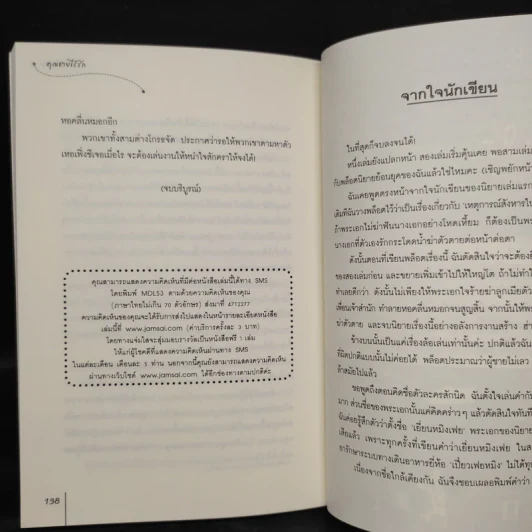 คุณชายไร้รัก
หอคลื่นหมอกอีก
พวกเขาทั้งสามต่างโกรธจัด ประกาศว่ารอให้พวกเขาตามหาตัว
เหอเฟิ่งซีเจอเมื่อไร จะต้องเล่นงานให้หนำใจสักคราให้จงได้!
(จบบริบูรณ์)
คุณสามารถแสดงความคิดเห็นที่มีต่อหนังสือเล่มนี้ได้ทาง SMS
โดยพิมพ์ MDL53 ตามด้วยความคิดเห็นของคุณ
(ภาษาไทยไม่เกิน 70 ตัวอักษร) ส่งมาที่ 4712277
ความคิดเห็นของคุณจะได้รับการส่งไปแสดงในหน้ารายละเอียดหนังสือ
เล่มนี้ที่ www.jamsai.com (ค่าบริการครั้งละ 3 บาท)
โดยทางแจ่มใสจะสุ่มมอบรางวัลเป็นหนังสือฟรี 1 เล่ม
ให้แก่ผู้โชคดีที่แสดงความคิดเห็นผ่านทาง SMS
ในแต่ละเดือน เดือนละ 5 ท่าน นอกจากนี้คุณยังสามารถแสดงความคิดเห็น
ผ่านทางเว็บไซต์ www.jamsai.com ได้อีกช่องทางตามปกติค่ะ
198
จากใจนักเขียน
ในที่สุดก็จบลงจนได้!
หนึ่งเล่มยังแปลกหน้า สองเล่มเริ่มคุ้นเคย พอสามเล่ม
กับพล็อตนิยายย้อนยุคของฉันแล้วใช่ไหมคะ (เชิญพยักหน้า
ฉันเคยพูดตรงหน้าจากใจนักเขียนของนิยายเล่มแรก
เดิมทีฉันวางพล็อตไว้ว่าเป็นเรื่องเกี่ยวกับ 'เหตุการณ์สังหารใน
ถ้าพระเอกไม่ฆ่าฟันนางเอกอย่างโหดเหี้ยม ก็ต้องเป็นพระ
นางเอกที่ตัวเองรักกระโดดน้ำฆ่าตัวตายต่อหน้าต่อตา
ดังนั้นตอนที่เขียนพล็อตเรื่องนี้ ฉันตัดสินใจว่าจะต้อง
ของสองเล่มก่อน และขยายเพิ่มเข้าไปให้ใหญ่โต ถ้าไม่ทำให้
ทำเลยดีกว่า ดังนั้นไม่เพียงให้พระเอกใจร้ายฆ่าลูกเมียตัว
เพื่อนเจ้าสำนัก ทำลายหอคลื่นหมอกจนสูญสิ้น จากนั้นให้พระ
ฆ่าตัวตาย และจบนิยายเรื่องนี้อย่างอลังการงานสร้าง
ข้างบนนั้นเป็นแค่เรื่องล้อเล่นเท่านั้นค่ะ ปกติแล้วฉัน
ที่ผิดปกติแบบนั้นไม่ค่อยได้ พล็อตประมาณว่าผู้ชายไม่เลว
ขอพูดถึงตอนคิดชื่อตัวละครสักนิด ฉันตั้งใจเล่นคำกับ
มาก ส่วนชื่อของพระเอกนั้นแค่คิดคร่าวๆ แล้วตัดสินใจทันที
ฉันค่อยรู้สึกตัวว่าตั้งชื่อ 'เยี่ยนหมิงเฟย' พระเอกของนิยาย
เสียแล้ว เพราะทุกครั้งที่เขียนคำว่าเยี่ยนหมิงเฟย
ยารักษาระบบทางเดินอาหารยี่ห้อ 'เปี่ยวเฟยหมิง' ไม่ได้ทุก
เนื่องจากชื่อใกล้เคียงกัน ฉันจึงชอบเผลอพิมพ์คำว่า